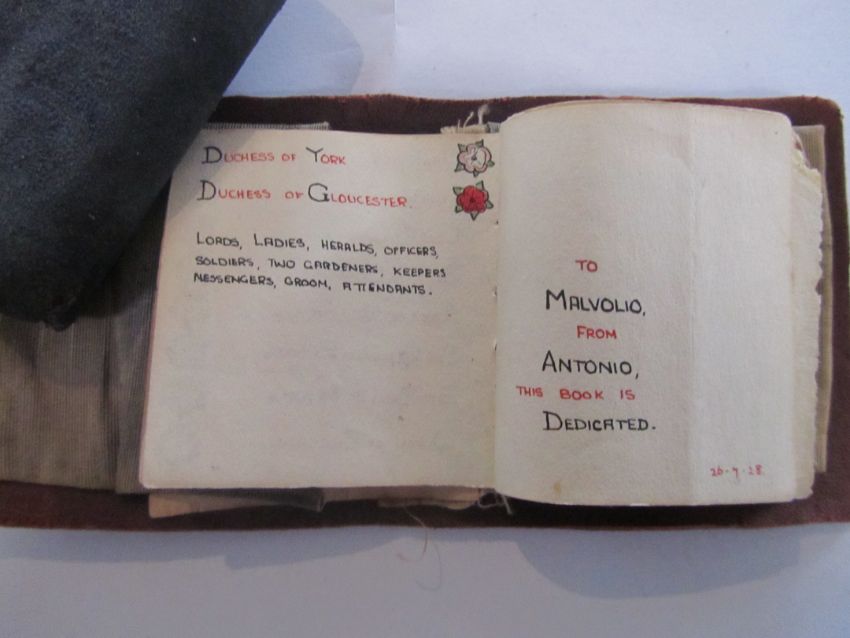 DUCHESS OF YORK
DUCHESS OF GLOUCESTER.
LORDS, LADIES, HERALDS, OFFICERS,
SOLDIERS, TWO GARDENERS, KEEPERS
MESSENGERS, GROOM, ATTENDANTS.
TO
MALVOLIO,
FROM
ANTONIO,
THIS BOOK IS
DEDICATED.
26-7-28.